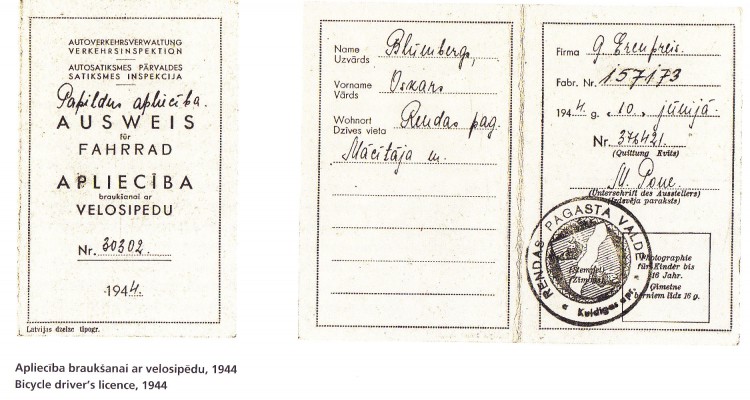 AUTOVERKEHRSVERWALTUNG
VERKEHRSINSPEKTION
AUTOSATIKSMES PĀRVALDES
SATIKSMES INSPEKCIJA
Papildus apliecība.
AUSWEIS
für
FAHRRAD
APLIECĪBA
braukšanai ar
VELOSIPEDU
Nr. 30302.
1944.
Latvijas dzelsc tipogr.
Name
Uzvārds
Blumbergs,
Vorname
Vārds
Oskars
Wohnort
Dzīves vieta
Rendas pag.
Mācītāja m.
Firma G. Erenpreis.
Fabr. Nr. 157173
1944. g. „10„ jūnijā.
Nr. 376421.
(Quittung Kvīts)
M. Pone.
(Unterschrift des Ausstellers)
(Izdevēja paraksts)
RENDAS PAGASTA VALDE
Kuldīgas apr.
(Stempel)
(Zīmogs)
Photographie
für Kinder bis
16 Jahr.
Ģīmetne
bērniem līdz 16 g.
Apliecība braukšanai ar velosipēdu, 1944
Bicycle driver's licence, 1944